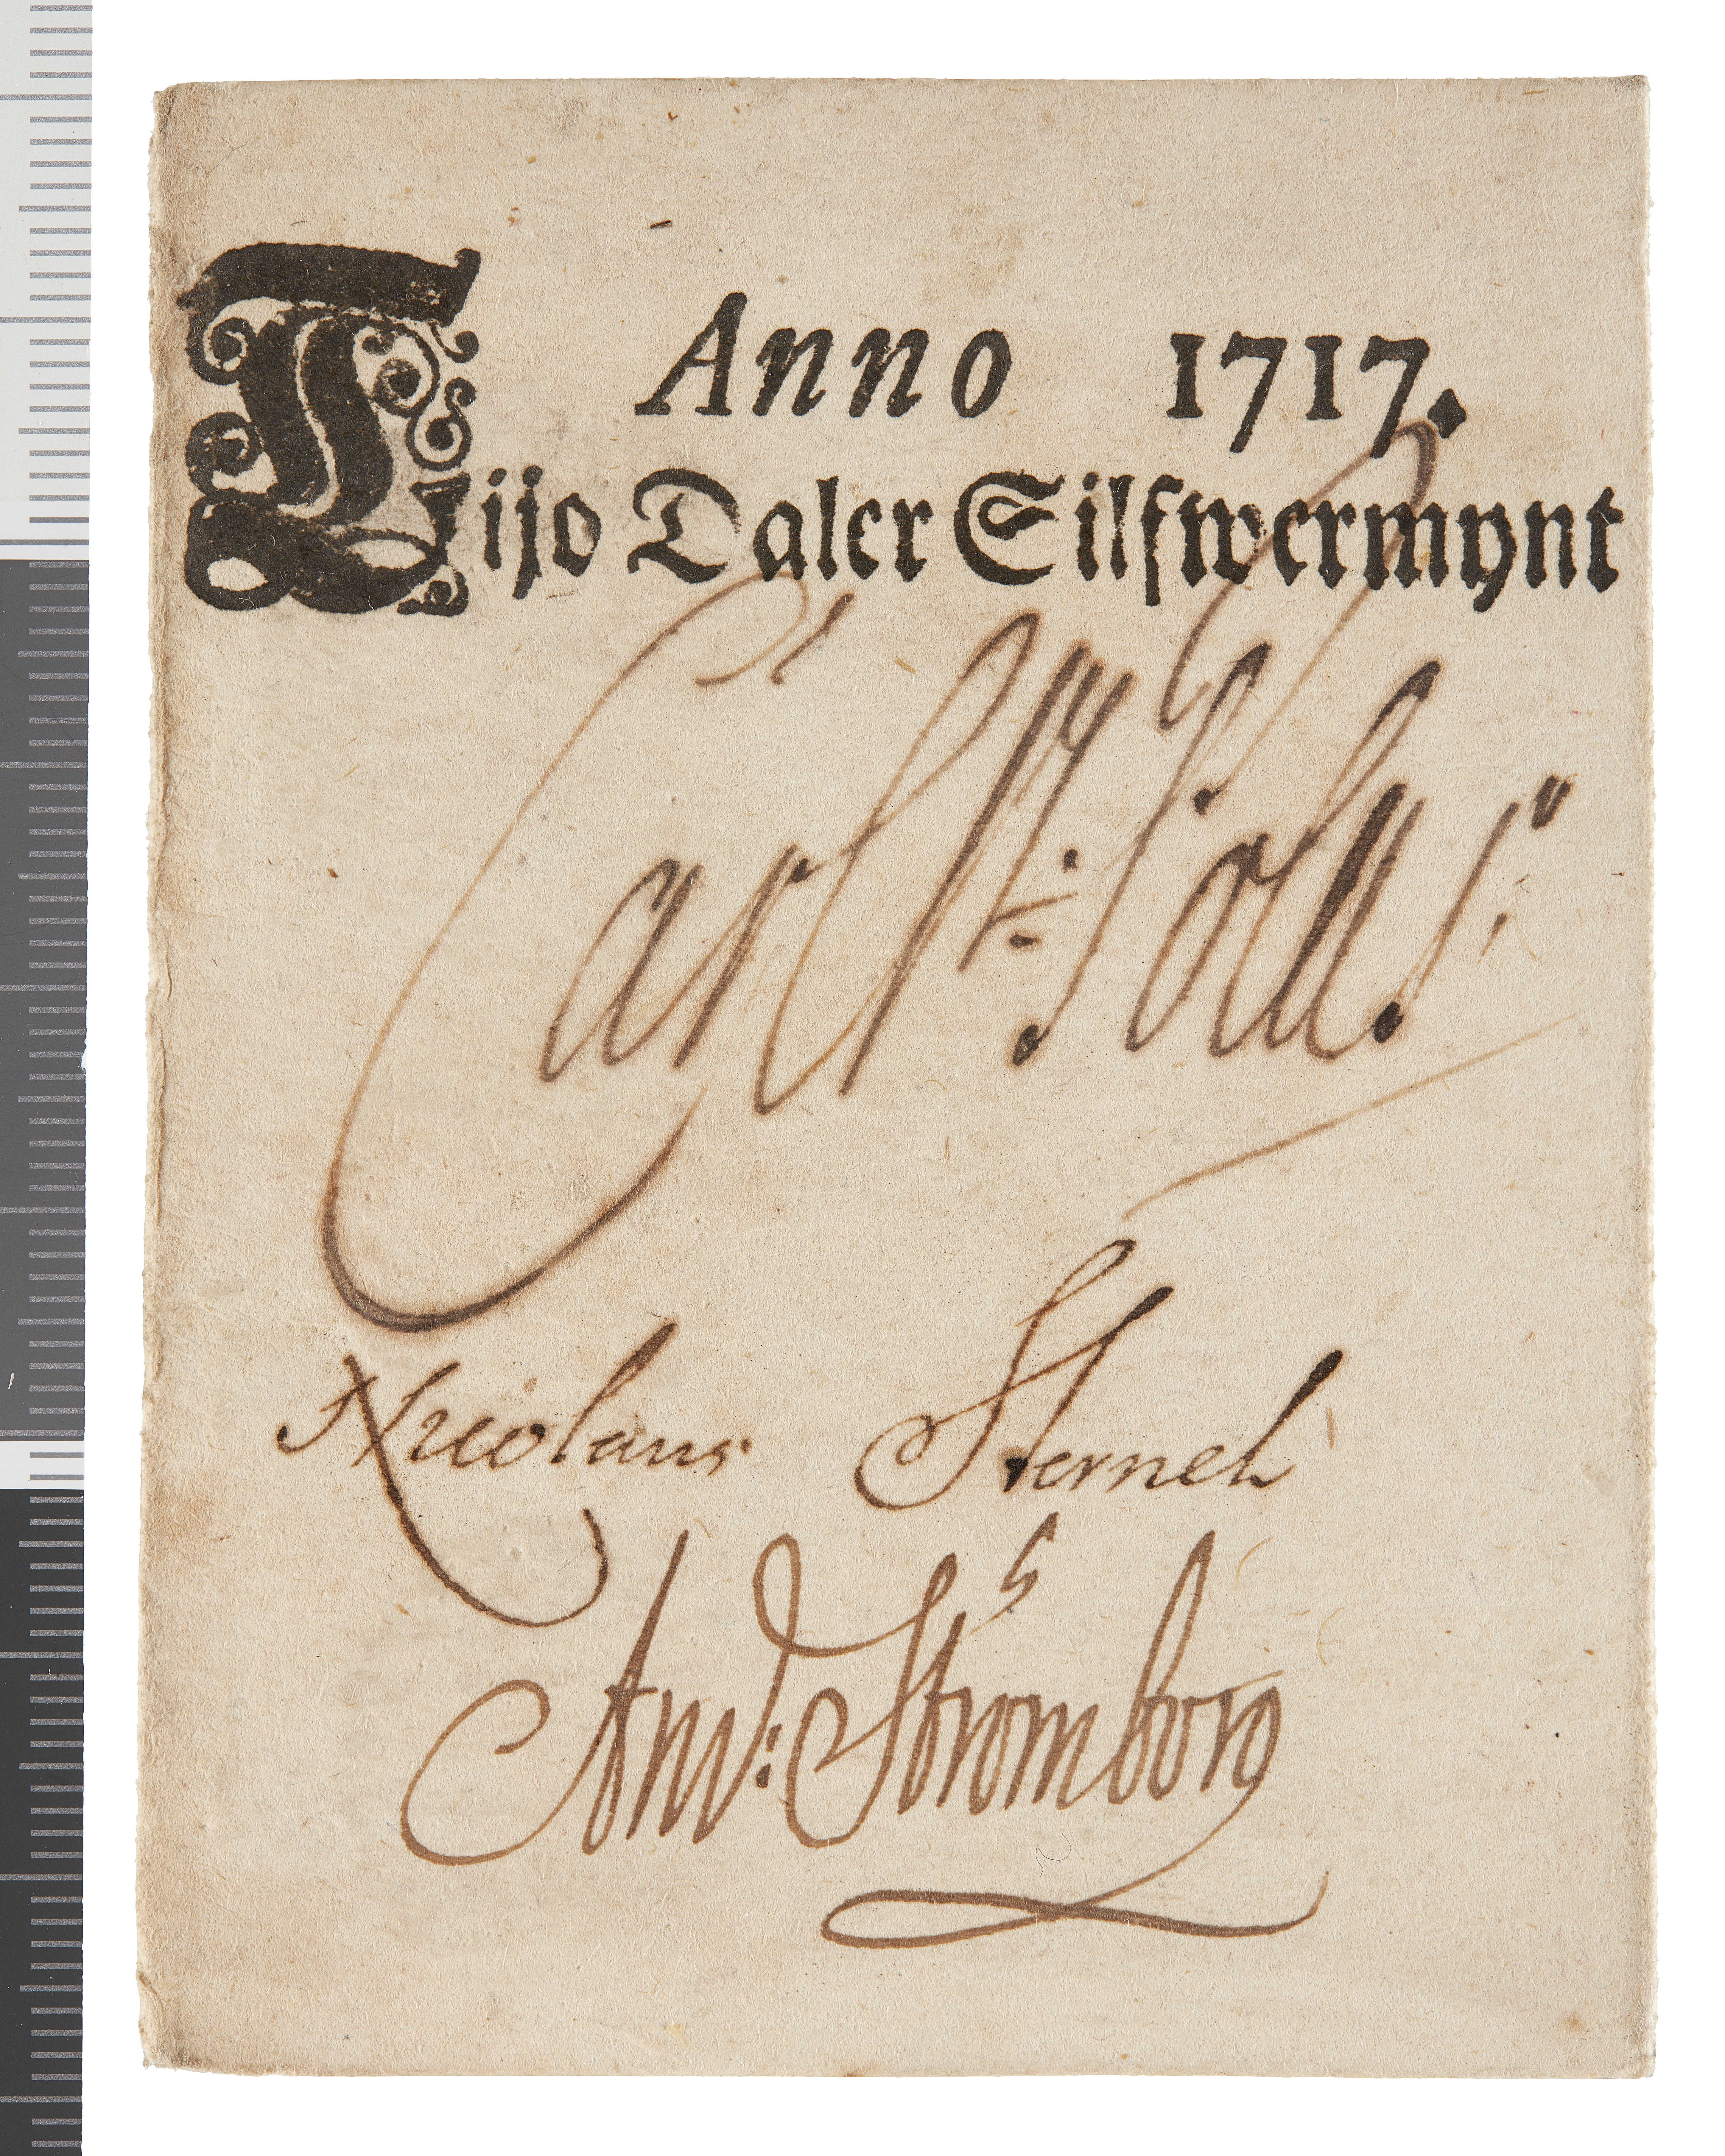 Anno 1717.
Tijo Daler Silfwermynt
Carl
Nicolaus Sternel
And: Stromborg